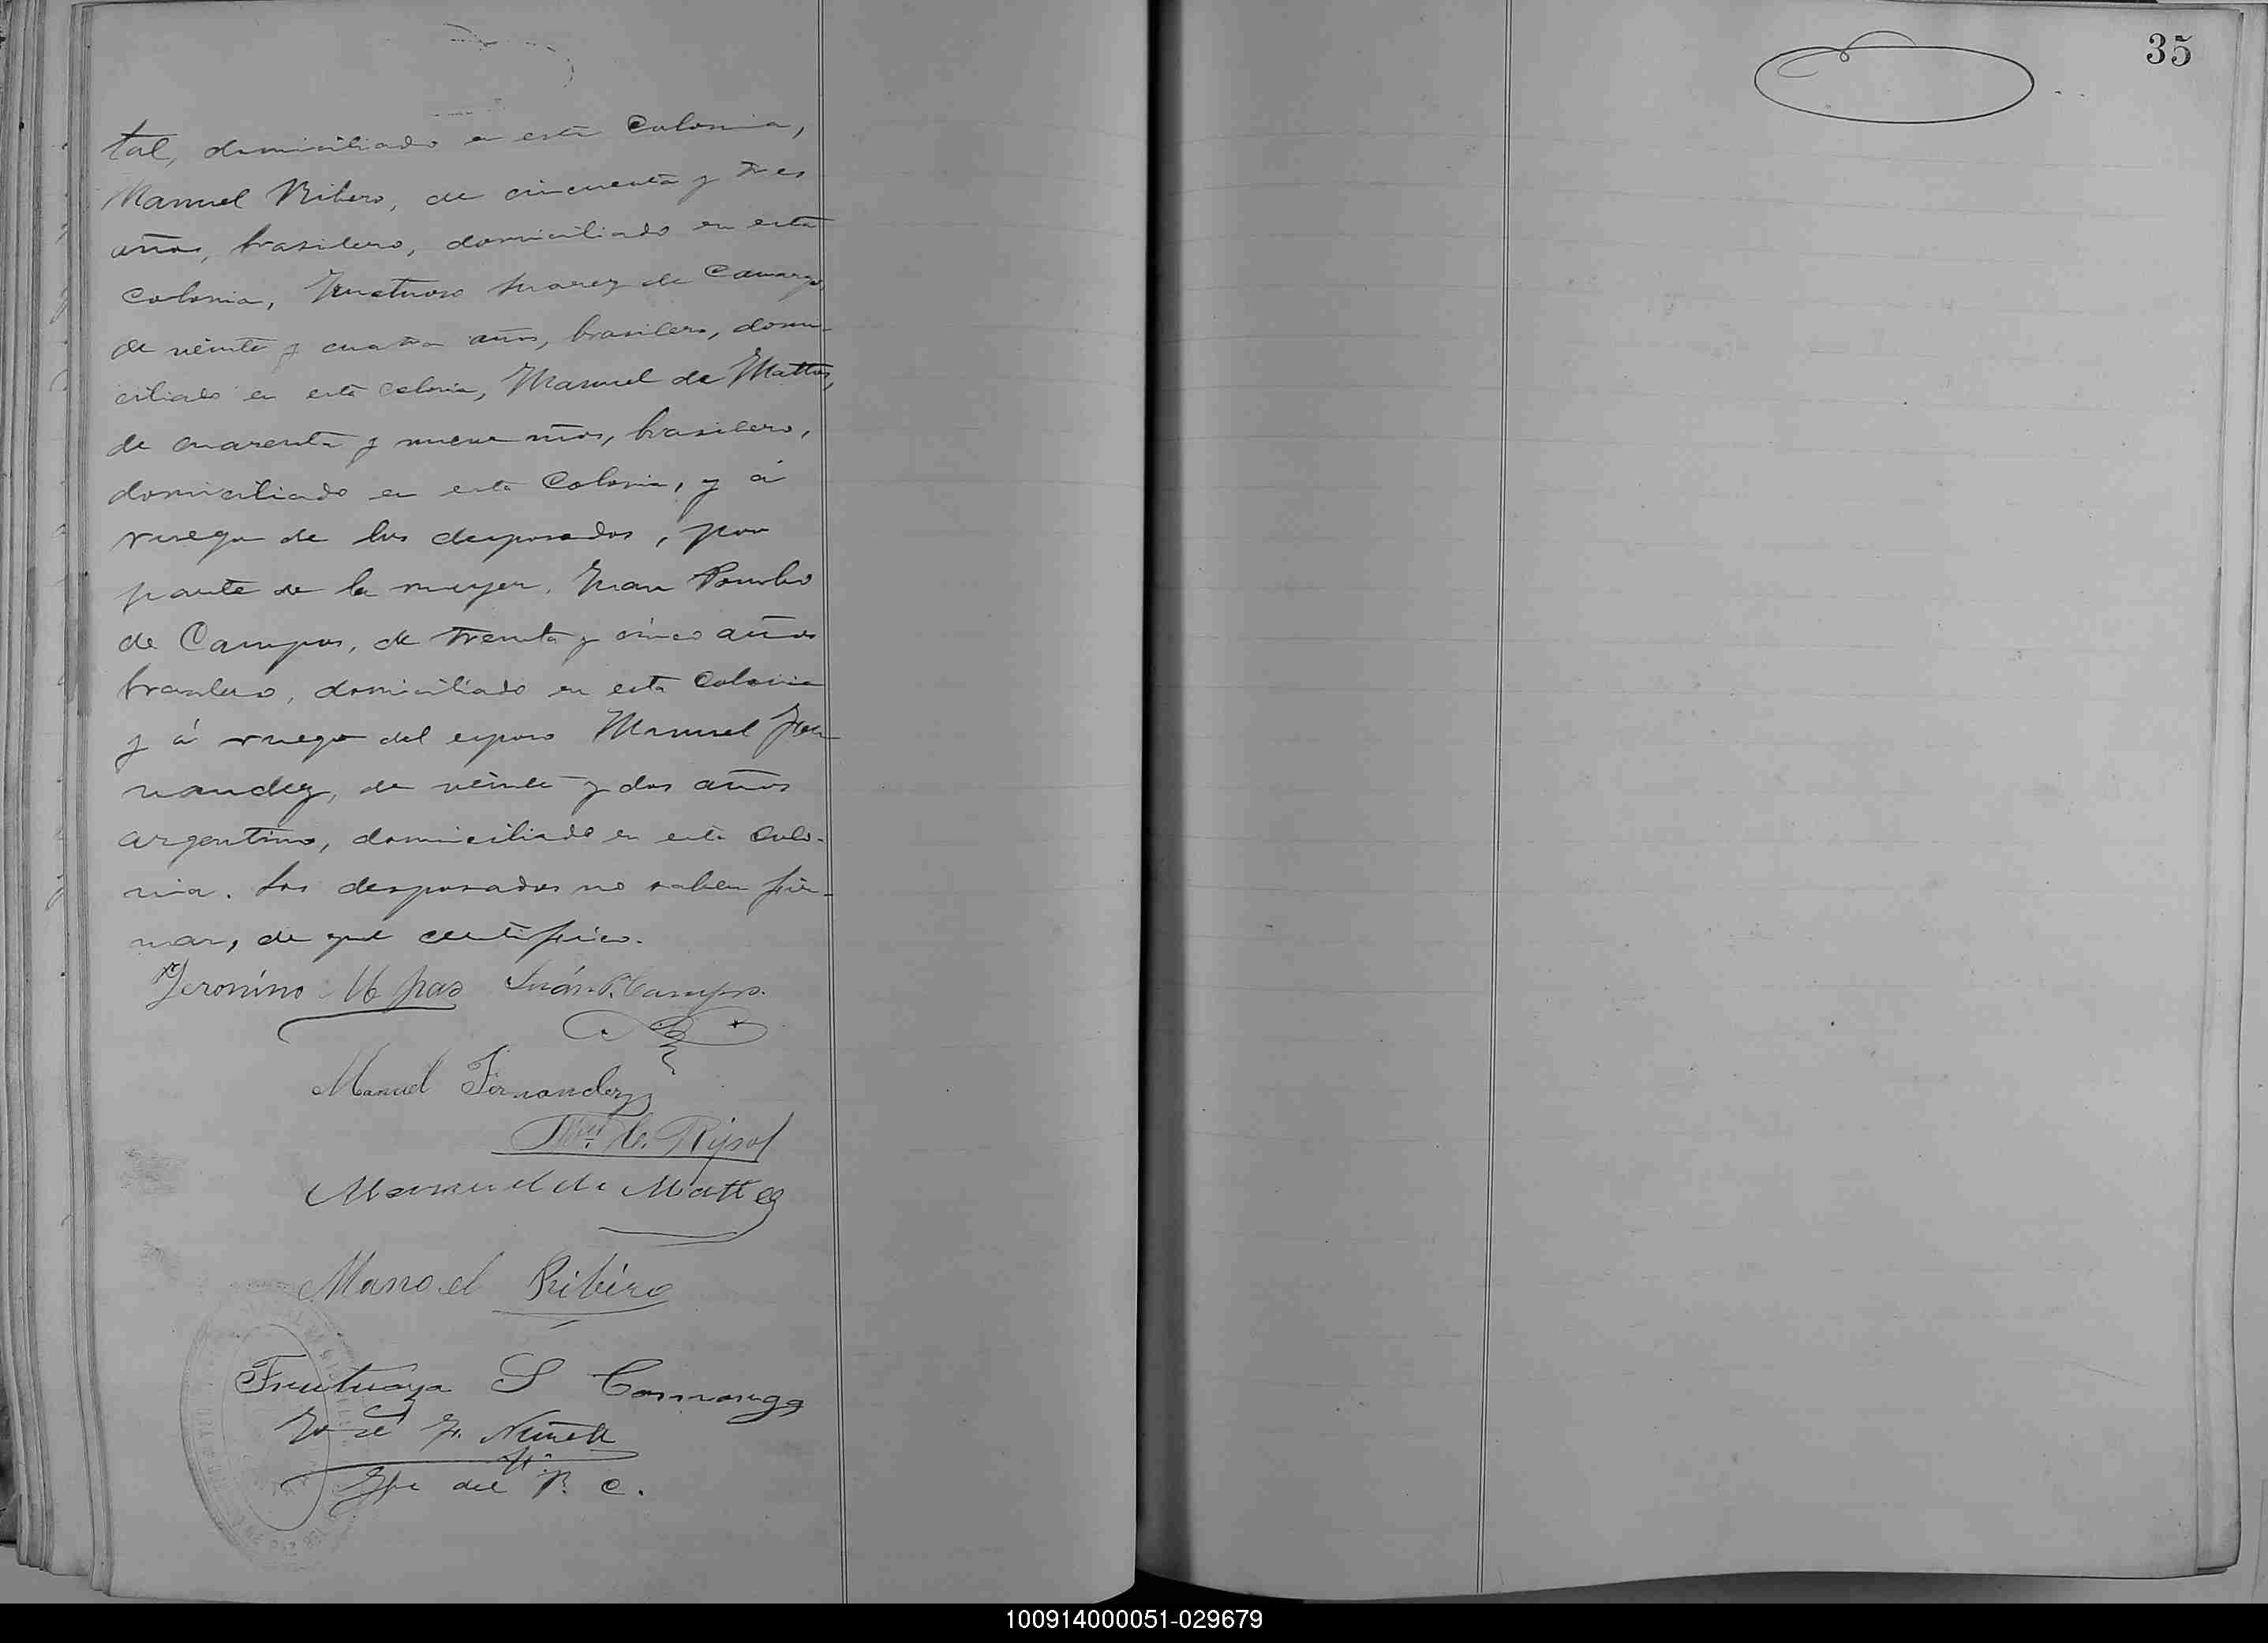 tal, domiciliado en esta Colonia,
Manuel Ribero, de cincuenta y tres
años, brasilero, domiciliado en esta
Colonia, Fructuoso Suarez de Camargo,
de veinte y cuatro años, brasilero, domi-
ciliado en esta Colonia, Manuel de Mattos,
de cuarenta y nueve años, brasilero,
domiciliado en esta Colonia, y á
ruego de los desposados, por
parte de la mujer, Juan Pombo
de Campos, de treinta y cinco años
brasilero, domiciliado en esta Colonia
y á ruego del esposo Manuel Fer
nandez, de veinte y dos años
argentino, domiciliado en esta Colo-
nia. Los desposados no saben fir-
mar, de que certifico.
Jeronimo Juán P. Campos.
Manuel Fernandez
Manuel de Mattos
Manoel Ribeiro
S Camargo
José F.
Jfe del R. C.
35
100914000051-029679